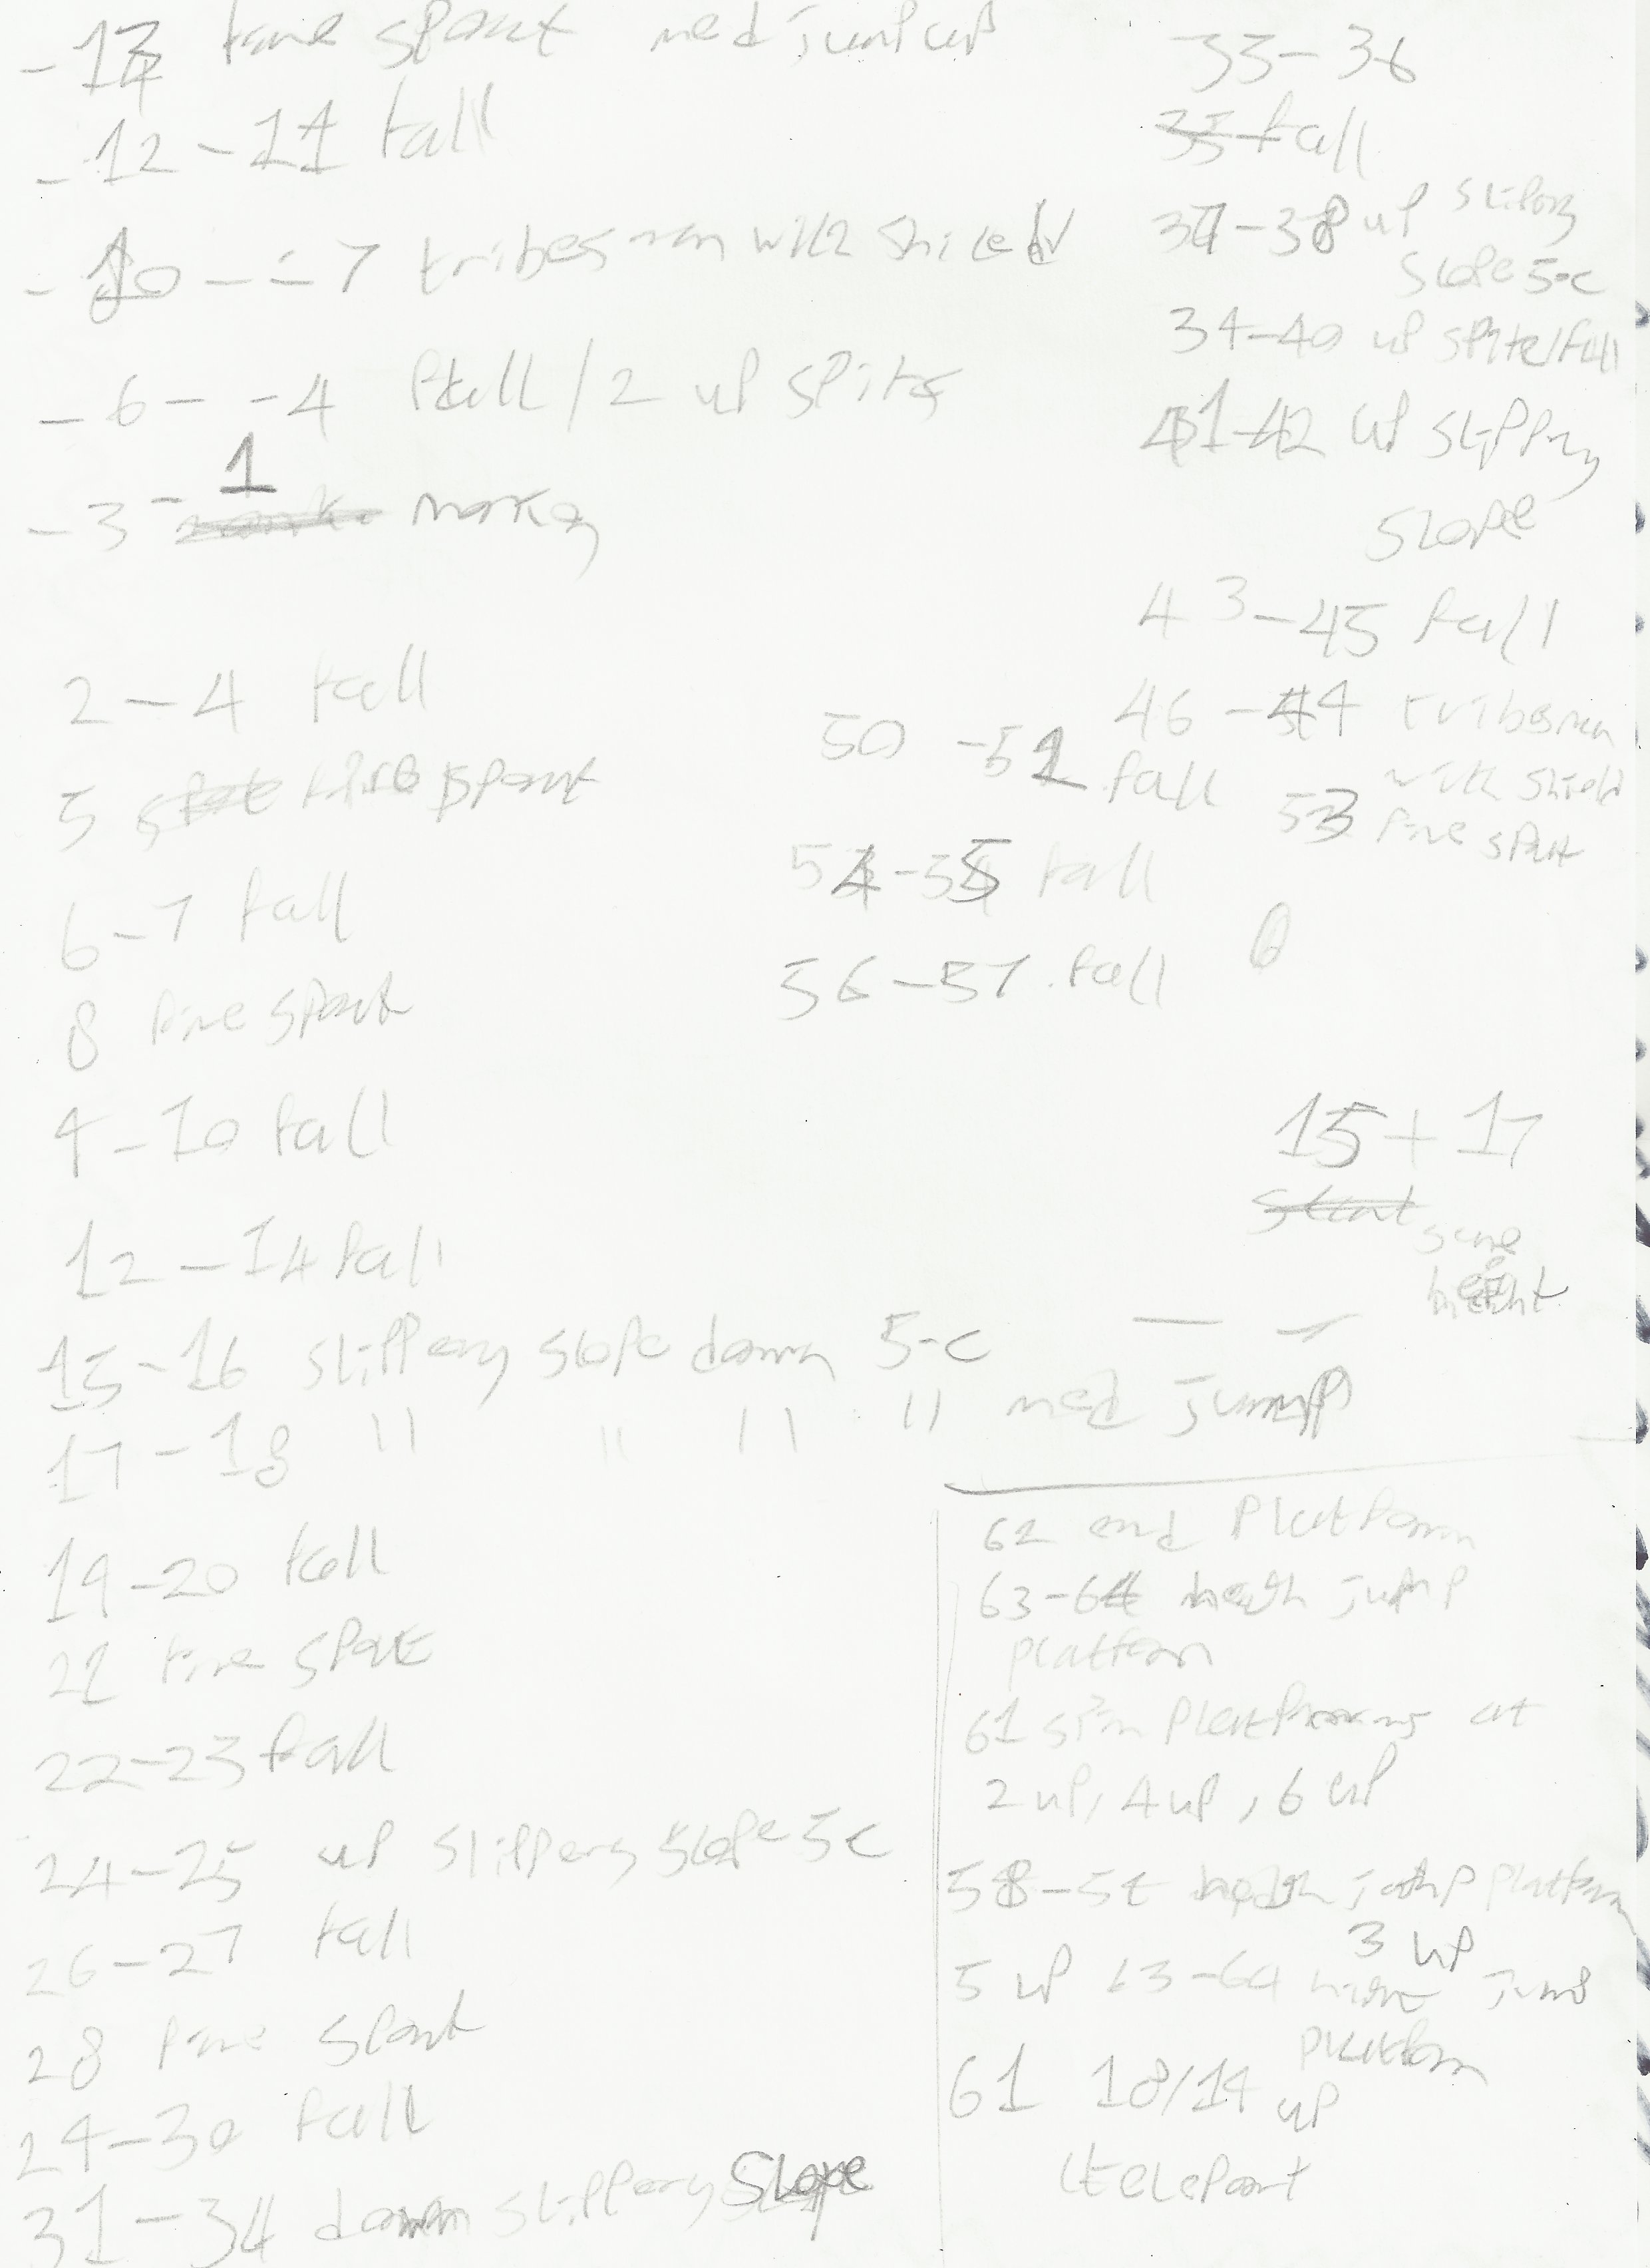 -14 fire spout med jump up
-12 - 11 fall
-10 - -7 tribesman with shield
-6 - -4 fall / 2 up spite
-3 - 1
2-4 fall
5 fire spout
6-7 fall
8 fire spout
9-10 fall
12-14 fall
15-16 slippery slope down 5-c
17-18 " " " " med jump
19-20 fall
21 fire spout
22-23 fall
24-25 up slippery slope 5c
26-27 fall
28 fire spout
29-30 fall
31-34 down slippery slope
33-36
fall
37-38 up slippery
slope 5-c
39-40 up spite/fall
41-42 up slippery
slope
43-45 fall
46-49 tribesman
with shield
50-51 fall
53 fire spout
54-55 fall
56-57 fall
15+17
same
height
62 end platform
63-64 jump
platform
61 spin platforms at
2 up, 4 up, 6 up
58-59 jump platform
5 up 63-64 3 up jump
platform
61 18/19 up
(teleport